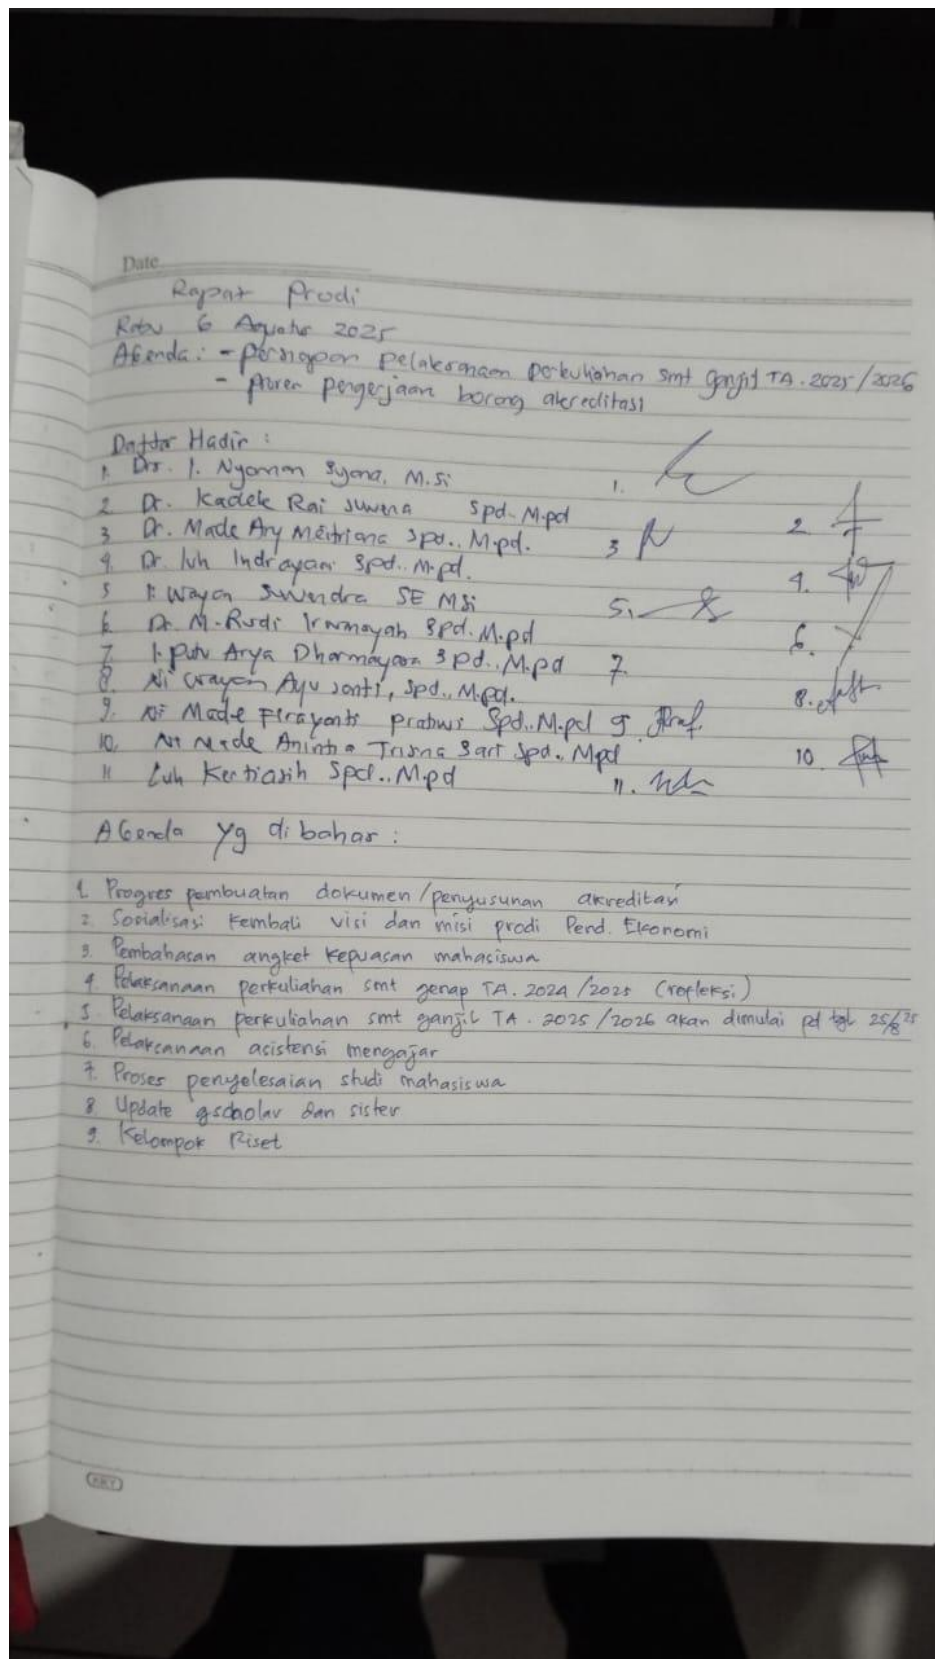 Date
Rapat Prodi
Rabu 6 Agustus 2025
AGenda : - persiapan pelaksanaan perkuliahan smt ganjil TA. 2025/2026
- proses pengerjaan borang akreditasi
Daftar Hadir :
1. Drs. I. Nyoman Syona, M.Si 1.
2 Dr. Kadek Rai Suwena Spd. M.pd 2
3 Dr. Made Ary Meitriana Spd., M.pd. 3
4. Dr. luh Indrayani Spd., M.pd. 4.
5 I. Wayan Suwendra SE MSi 5.
6 Dr. M. Rudi Irwansyah Spd. M.pd 6.
7 I. Putu Arya Dharmayasa Spd., M.pd 7.
8. Ni Wayan Ayu Santi, Spd., M.pd. 8.
9. Ni Made Firayanti Pratiwi Spd., M.pd 9
10. Ni Made Anintia Trisna Sari Spd., Mpd 10
11 Luh Kertiasih Spd., M.pd 11.
AGenda yg dibahas :
1. Progres pembuatan dokumen/penyusunan akreditasi
2. Sosialisasi kembali visi dan misi prodi Pend. Ekonomi
3. Pembahasan angket kepuasan mahasiswa
4 Pelaksanaan perkuliahan smt genap TA. 2024/2025 (refleksi)
5. Pelaksanaan perkuliahan smt ganjil TA. 2025/2026 akan dimulai pd tgl 25/8 25
6. Pelaksanaan asistensi mengajar
7. Proses penyelesaian studi mahasiswa
8 Update gscholar dan sister
9. Kelompok Riset